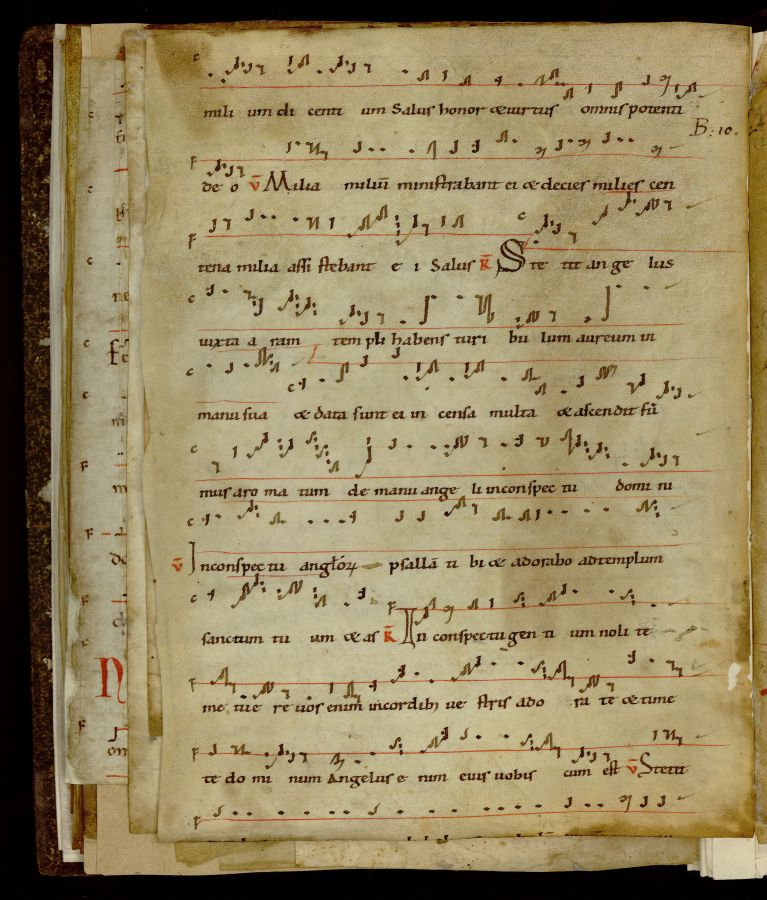 mili um di centi um Salus honor & uirtus omnis potenti
B: 10.
de o v̄ Milia miliū ministrabant ei & decies milies cen
tena milia assi stebant e i Salus R̄ Ste tit an ge lus
iuxta a ram tem pli habens turi bu lum aureum in
manu sua & data sunt ei in censa multa & ascendit fū
mus aro ma tum de manu ange li in conspec tu domi ni
v̄ In conspec tu angłoꝝ psallā ti bi & adorabo ad templum
sanctum tu um & as R̄ In conspectu gen ti um noli te
me tu e re uos enim in cordib; ue stris ado ra te & time
te do mi num Angelus e nim eius uobis cum est v̄ Stetit